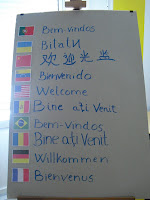 Bem-vindos
欢迎光
Bienvenido
Welcome
Bine aţi Venit
Bem-vindos
Bine aţi Venit
Willkommen
Bienvenus